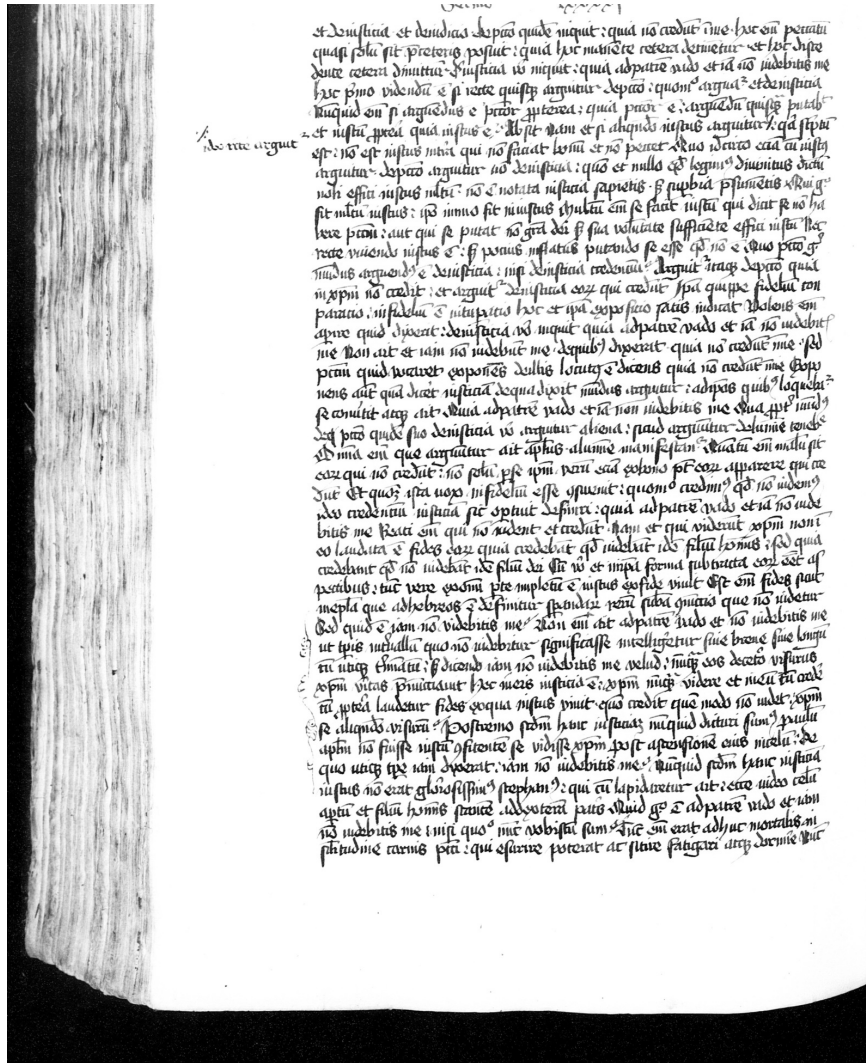 Sermo xxxxx
et de iusticia et de iudicio de pctō quidē inquit : quia nō credūt ī me hoc em̄ peccatū
quasi solū sit p̄ ceteris posuit : quia hoc manēte cetera detinētur et hoc disce
dente cetera dimittūtur De iusticia vō inquit : quia ad patrē vado et iā nō videbitis me
hoc p̄mo videndū ē si recte quisq̄ arguitur de pctō : quomō arguatur et de iusticia
Nunquid em̄ si arguēdus ē pctōr ꝓpterea : quia pctōr ē : arguēdū quisq̄ putabit
et iustū ꝓpterea quia iustus ē Absit Nam et si aliqn̄do iustus arguitur / : q̄a scriptū
ido rcte arguit
est : nō est iustus in trā qui nō faciat bonū et nō peccet Quo idcirco eciā cū iustus
arguitur de pctō arguitur nō de iusticia : quō et in illo qd̄ legimꝰ diuinitus dictū
noli effici iustus multū nō ē notata iusticia sapiētis sꝫ suꝑbia p̄sumētis Qui gͦ
fit multū iustus : ipō nimio fit iniustus Multū em̄ se facit iustū qui dicit se nō ha
bere pctm̄ : aut qui se putat nō grā dei sꝫ sua volūtate sufficiēte effici iustū Nec
recte viuendo iustus ē : sꝫ pocius inflatus putando se esse qd̄ nō ē Quo pctō gͦ
mūdus arguendꝰ ē de iusticia : nisi de iusticia credenciū Arguitur itaqꝫ de pctō quia
in xp̄m nō credit : et arguitur de iusticia eorꝝ qui credūt Ipā quippe fideliū con
paracio : infideliū ē vitupatio hoc et ipā exposicio satis indicat Volens em̄
apire quid dixerat : de iusticia vō inquit quia ad patrē vado et iā nō videbitis
me Non ait et iam nō videbūt me de quibꝰ dixerat quia nō credūt in me : Sed
pctm̄ quid vocaret exponēs de illis locutꝰ ē dicens quia nō credūt in me Expo
nens aūt quā dicēt iusticiā de qua dixit mūdus arguitur : ad ipos quibꝰ loquebatur
se cōuertit atqꝫ ait Quia ad patrē vado et iā non videbitis me Qua ꝓpter mūdꝰ
de pctō quidē suo de iusticia vō arguitur aliena : sicud arguūtur de lumīe tenebre
Oīa em̄ que arguūtur ait apl̄us a lumīe manifestantur Quātū em̄ malū sit
eorꝝ qui nō credūt : nō solū per se ipm̄ verū eciā ex bono pōt eorꝝ apparere qui cre
dūt Et quoꝝ ista vox infideliū esse ꝯsueuit : quomō credimꝰ qd̄ nō videmꝰ
ideo credenciū iusticia sic optuit definiri : quia ad patrē vado et iā nō vide
bitis me Beati em̄ qui nō vidēt et credūt Nam et qui viderūt xp̄m non ī
eo laudata ē fides eorꝝ quia credebāt qd̄ videbāt idē filiū hoīnis : sed quia
credebant qd̄ nō videbāt idē filiū dei Cū vō et in ipā forma subtracta eorꝝ eēt as
pectibus : tūc vere ex oīm pte impletū ē iustus ex fide viuit Est em̄ fides sicut
in epl̄a que ad hebreos ē definitur sperantiū rerū suba cōuictio que nō videtur
Sed quid ē iam nō videbitis me Non em̄ ait ad patrē vado et nō videbitis me
ut tp̄is interuallū quo nō videbitur significasse intelligeretur siue breue siue longū
tn̄ vtiqꝫ t̄minatū : sꝫ dicendo iam nō videbitis me velud nūqꝫ eos de cetero visuros
xp̄m veritas p̄nūciauit Hec in eis iusticia ē : xp̄m nūqꝫ videre et in eū tn̄ crede
cū ꝓpterea laudetur fides ex qua iustus viuit quo credit quē modo nō videt xp̄m
se aliqn̄do visurū Postremo scdm̄ hanc iusticiaꝫ nunquid dicturi sumꝰ paulū
apl̄m nō fuisse iustū ꝯfitente se vidisse xp̄m post ascensionē eius in celū : de
quo vtiqꝫ tp̄e iam dixerat : iam nō videbitis me Nunquid scdm̄ hanc iusticiā
iustus nō erat gloriosissimꝰ stephanꝰ : qui cū lapidaretur ait : ecce video celū
aptū et filiū hoīnis stantē ad dexterā patris Quid gͦ ē ad patrē vado et iam
nō videbitis me : nisi quōͦ nūc vobiscū sum Tūc em̄ erat adhuc mortalis in
sil̄itudine carnis pcti : qui esurire poterat ac sitire fatigari atqꝫ dormire Nūc